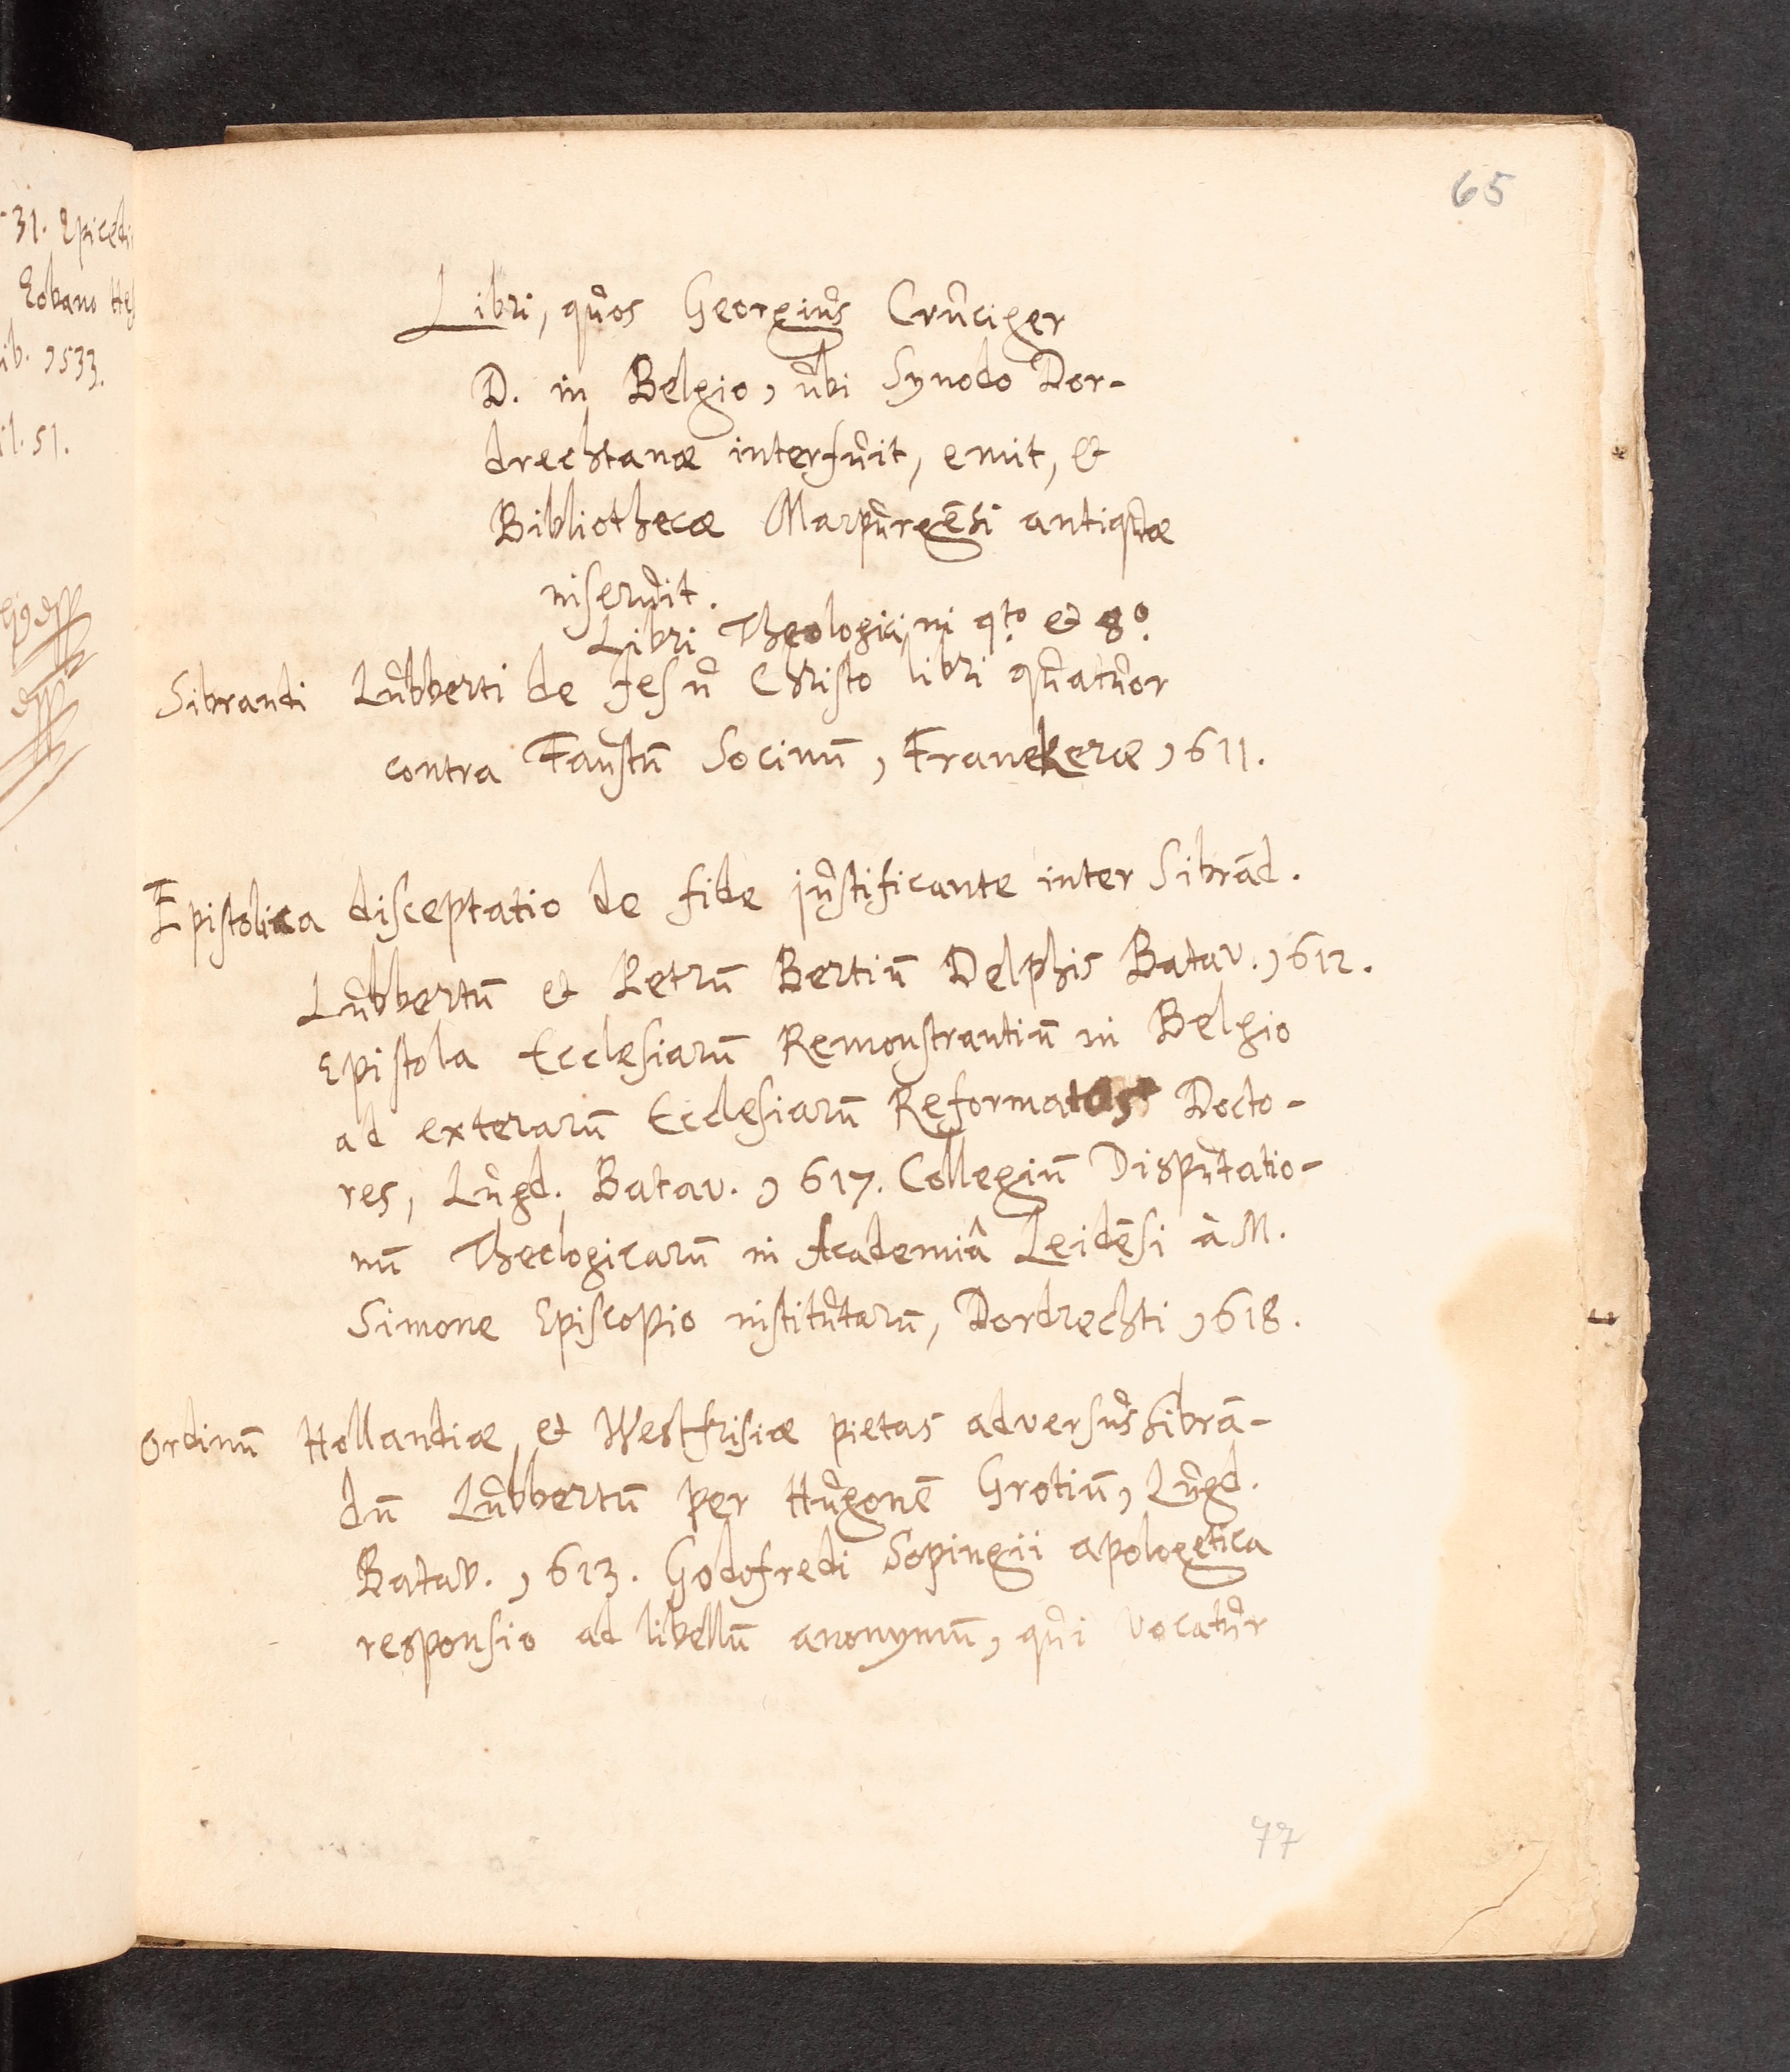 65
31. Epicedi
Eobano Hes
ib. 1533.
il. 51.
Libri, quos Georgius Cruciger
D. in Belgio, ubi Synodo Dor-
drechtanæ interfuit, emit, et
Bibliothecæ Marpurgēsi antiquæ
inseruit.
Libri Theologici, in 4to et 8o.
Sibrandi Lubberti de Jesu Christo libri quatuor
contra Faustū Socinū, Franekeræ 1611.
Epistolica disceptatio de fide justificante inter Sibrād.
Lubbertū et Petrū Bertiū Delphis Batav. 1612.
Epistola Ecclesiarū Remonstrantiū in Belgio
ad exterarū Ecclesiarū Reformatas Docto-
res, Lugd. Batav. 1617. Collegiū Disputatio-
nū Theologicarū in Academiâ Leidēsi à M.
Simone Episcopio institutarū, Dordrechti 1618.
Ordinū Hollandiæ et Westfrisiæ pietas adversus Sibrā-
dū Lubbertū per Hugonē Grotiū, Lugd.
Batav. 1613. Godofredi Sopingii apologetica
responsio ad libellū anonymū, qui vocatur
77